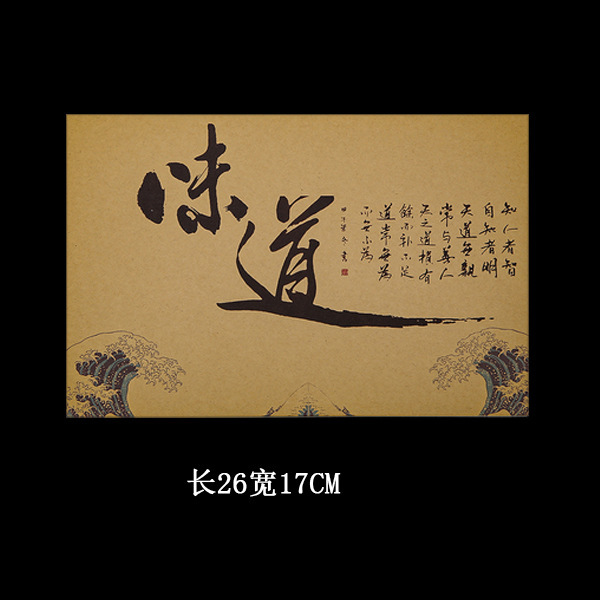 味道
知人者智
自知者明
天道無親
常与善人
天之道損有
餘而补不足
道常無為
而無不為
长26宽17CM